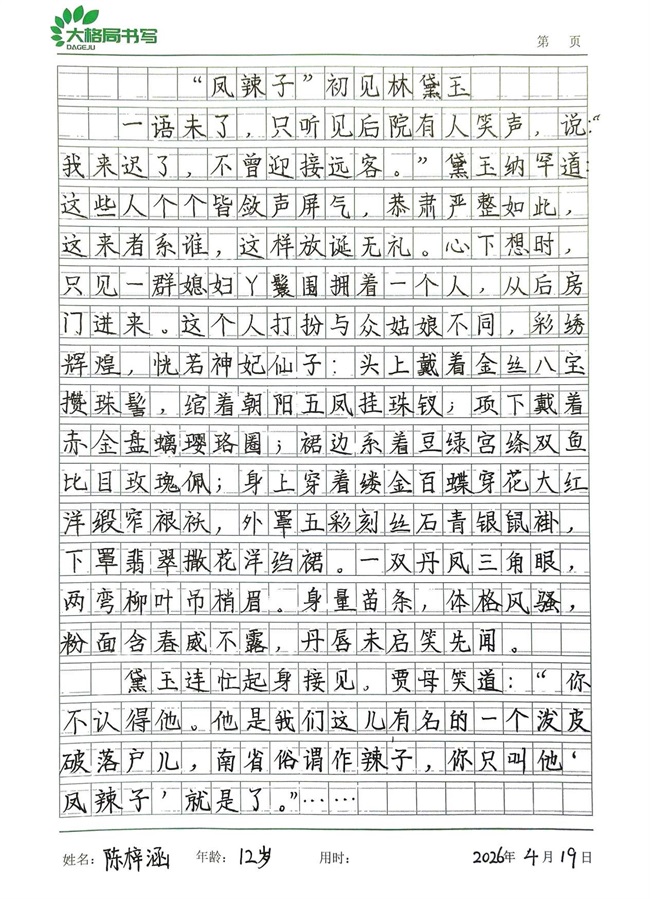 大格局书写
DAGEJU
第 页
“凤辣子”初见林黛玉
一语未了，只听见后院有人笑声，说：“
我来迟了，不曾迎接远客。”黛玉纳罕道：
这些人个个皆敛声屏气，恭肃严整如此，
这来者系谁，这样放诞无礼。心下想时，
只见一群媳妇丫鬟围拥着一个人，从后房
门进来。这个人打扮与众姑娘不同，彩绣
辉煌，恍若神妃仙子：头上戴着金丝八宝
攒珠髻，绾着朝阳五凤挂珠钗；项下戴着
赤金盘螭璎珞圈；裙边系着豆绿宫绦双鱼
比目玫瑰佩；身上穿着缕金百蝶穿花大红
洋缎窄裉袄，外罩五彩刻丝石青银鼠褂，
下罩翡翠撒花洋绉裙。一双丹凤三角眼，
两弯柳叶吊梢眉。身量苗条，体格风骚，
粉面含春威不露，丹唇未启笑先闻。
黛玉连忙起身接见。贾母笑道：“你
不认得他。他是我们这儿有名的一个泼皮
破落户儿，南省俗谓作辣子，你只叫他‘
凤辣子’就是了。”……
姓名：陈梓涵 年龄：12岁 用时： 2026年 4月19日